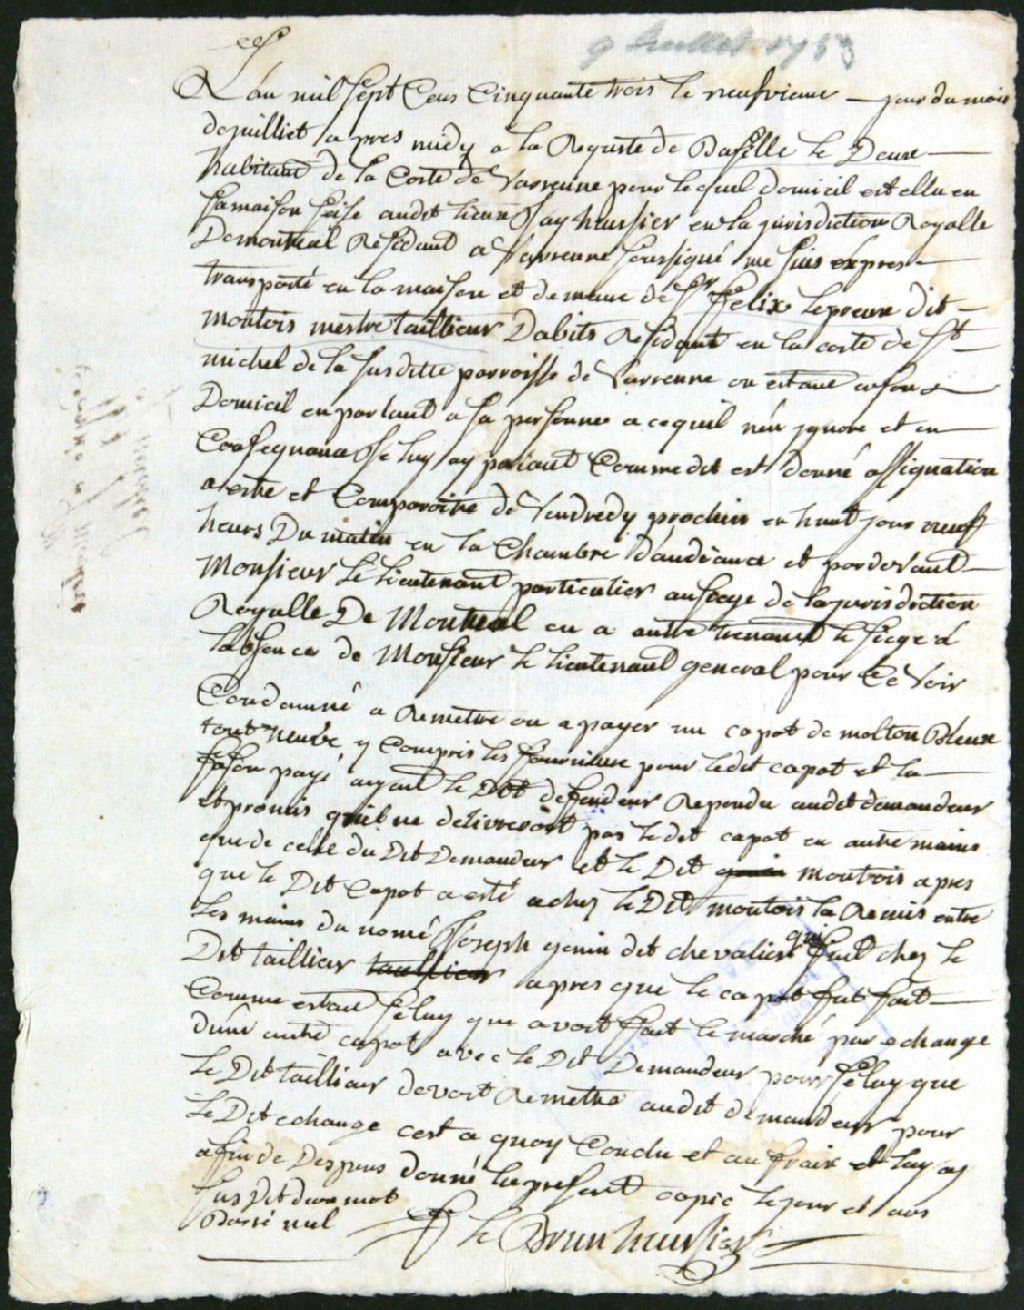 9 Juillet 1753
L'an mil sept Cens Cinquante trois le neufvieme jour du mois
dejuilliet apres midy a la Requste de Basille le Deux
habitant de la Coste de Varrenne pour lequel domicil est ellu en
sa maison sise audit lieux Jay huissier en la jurisdiction Royalle
De montreal Residant a Varrenne soussigné me suis expres
transporté en la maison et demeure de Sr Felix lepreux dit
montois mestre taillieur Dabits Residant en la coste de St
michel de la susditte parroisse de Varrenne ou estant a son
Domicil en parlant a sa personne a cequil nên jgnore et en
Consequance Je luy ay parlant Comme dit est donné assignation
a estre et Comparoitre de Vendredy prochin en huit jour a neuf
heurs Du matin en la Chambre d'audiance et pardevant
Monsieur Le lieutenant particulier au siege de la jurisdiction
Royalle De Montreal ou a autre tenant le siege à
l'absence de Monsieur le lieutenant general pour Ce Voir
Condamné a Remettre ou a payer un capot de molton Bleux
tout neuve y Compris les fourniture pour ledit capot et la
fason payé ayant le Dit deffendeur Repondu audit demandeur
et promis quiel ne delivreroit pas le dit capot en autre mains
que de celle du Dit Demandeur et le Dit montois apres
que le Dit Capot a esté achez le Dit montois la Remis entre
les mains du nomé Joseph genin dit chevalier qui fut chez le
Dit taillieur taillieur apres que le capot fut fait
Comme estant seluy que avoit fait le marché par echange
dune autre capot avec le Dit Demandeur pour seluy que
le Dit taillieur devoit Remettre audit demandeur pour
le Dit echange cest a quoy Conclu et au frais et luy ay
afin de Despens donné le present copie le jour et ans
sus Dit deux mot
Barré nul
le Brun huissier